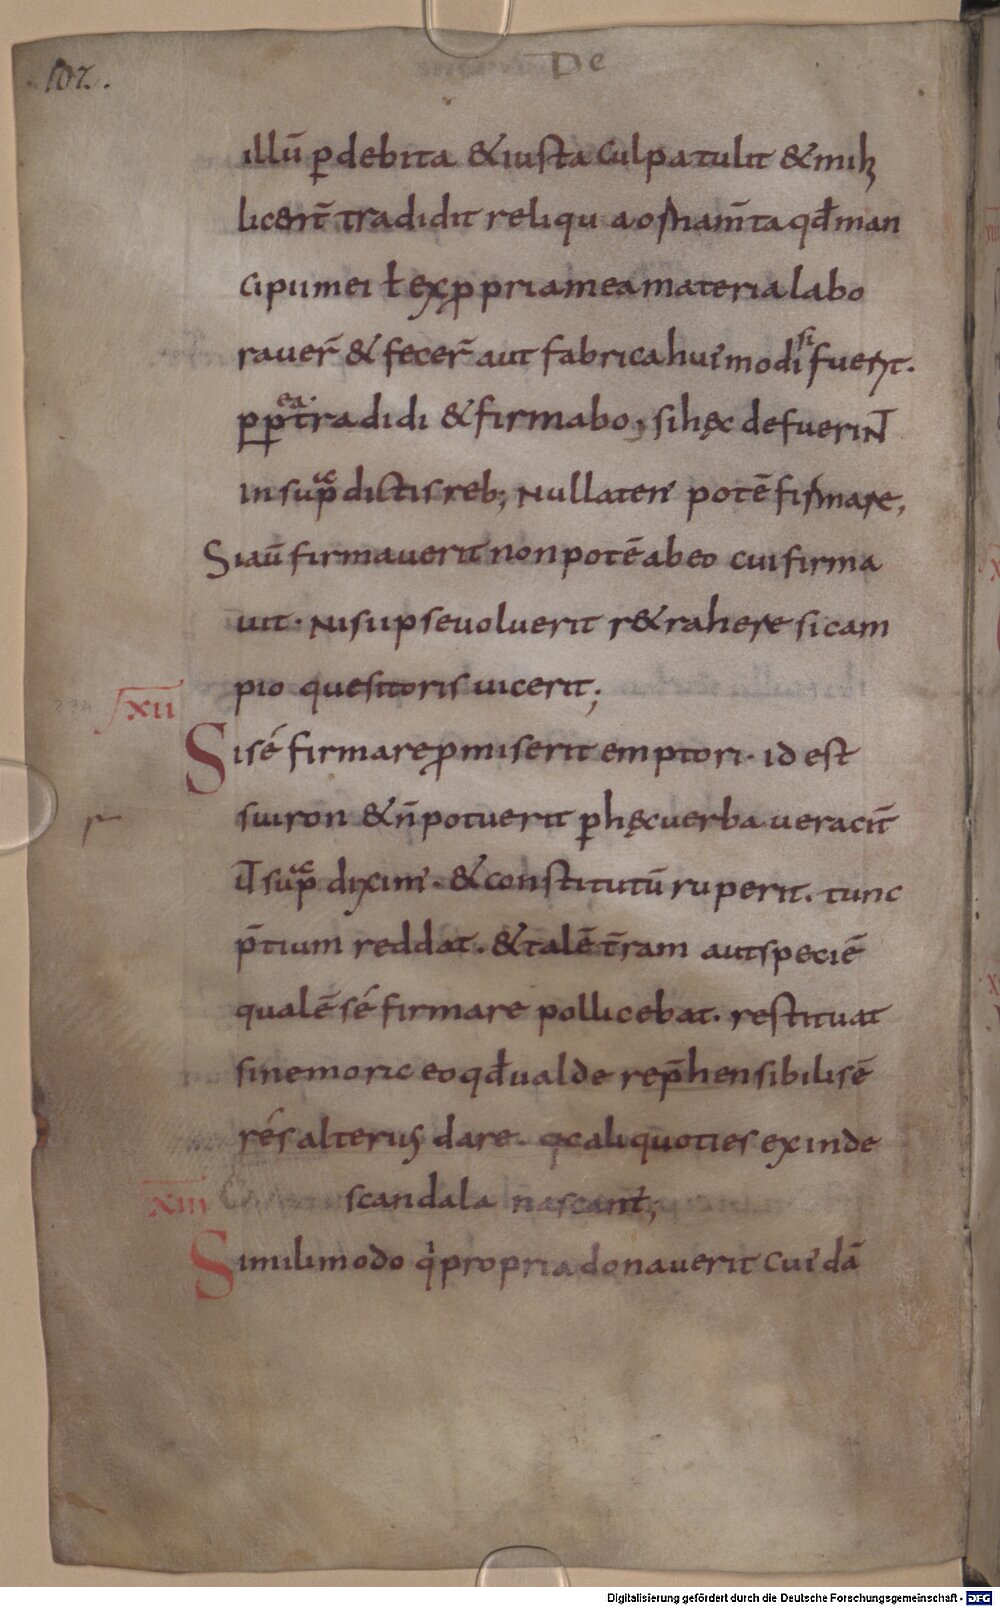 102.
De
illū ꝑdebita &iusta culpa tulit & mihi
licent̄ tradidit reliqua ornam̄ta qđ man
cipii mei ł exꝓpria mea materia labo
raver̄ & fecer̄ aut fabrica huiˀmodi si fuerit.
ꝓpt̄ ea tradidi & firmabo; si hęc defuerint
in sup̄ dictis reb; nullatenˀ potē firmare,
Siaū firmaverit non potē ab eo cui firma
vit. nisi ipse voluerit r&rahere si cam
pio quesitoris vicerit;
XII
Si sé firmare ꝓmiserit emptori. id est
suiron & n̄ potuerit ꝑ hęc verba veracit̄
ut sup̄ diximˀ. & constitutū ruperit. tunc
p̄tium reddat. & talē t̄ram aut speciē
qualē sé firmare pollicebat. restituat
sine moric eo qđ valde rep̄hensibilis ē
rés alterius dare. quali quoties exinde
XIII
scandala nascant̄;
Simili modo qi propria donaverit cuidā
Digitalisierung gefördert durch die Deutsche Forschungsgemeinschaft - DFG